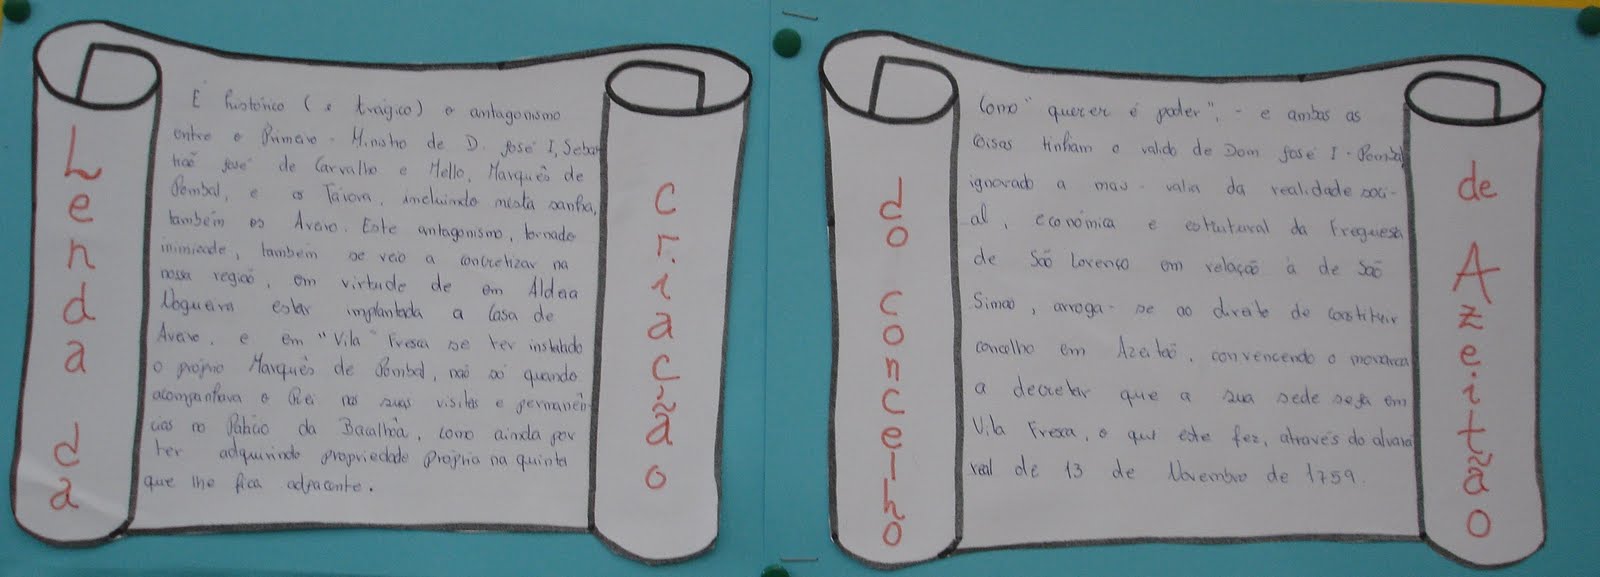 Lenda da
É histórico (e trágico) o antagonismo
entre o Primeiro-Ministro de D. José I, Sebas
tião José de Carvalho e Mello, Marquês de
Pombal, e os Távora, incluindo nesta sanha,
também os Aveiro. Este antagonismo, tornado
inimizade, também se veio a concretizar na
nossa região, em virtude de em Aldeia
Nogueira estar implantada a Casa de
Aveiro, e em "Vila" Fresca se ter instalado
o próprio Marquês de Pombal, não só quando
acompanhava o Rei nas suas visitas e permanên-
cias no Palácio da Bacalhôa, como ainda por
ter adquirindo propriedade própria na quinta
que lhe fica adjacente.
Criação
do Concelho
Como "querer é poder", - e ambas as
coisas tinham o valido de Dom José I - Pombal,
ignorado a mais-valia da realidade soci-
al, económica e estrutural da Freguesia
de São Lorenço em relação à de São
Simão, arroga-se ao direito de constituir
concelho em Azeitão, convencendo o monarca
a decretar que a sua sede seja em
Vila Fresca, o que este fez, através do alvará
real de 13 de Novembro de 1759.
de Azeitão